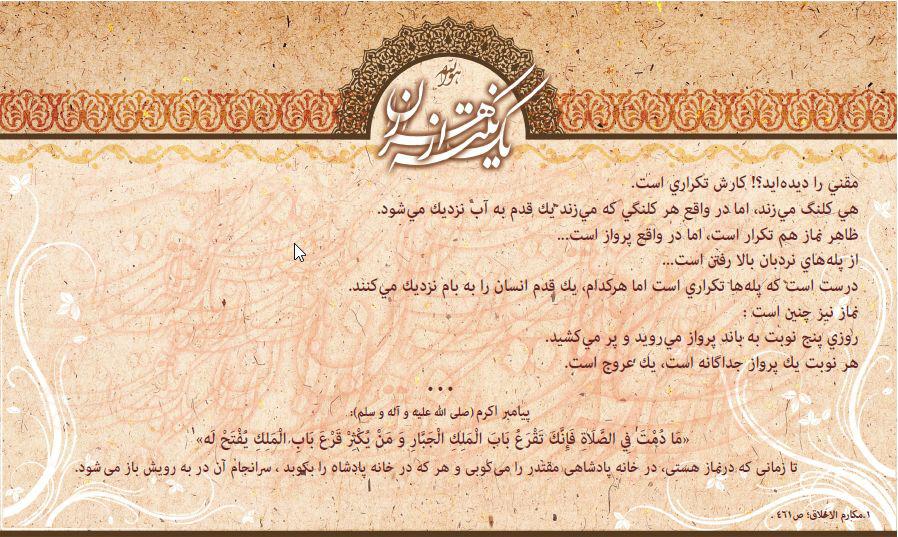 هو الله
یک نکته از هزاران
مقني را ديده‌ايد؟! كارش تكراري است.
هي كلنگ مي‌زند، اما در واقع هر كلنگي كه مي‌زند يك قدم به آب نزديك مي‌شود.
ظاهر نماز هم تكرار است، اما در واقع پرواز است...
از پله‌هاي نردبان بالا رفتن است...
درست است كه پله‌ها تكراري است اما هركدام، يك قدم انسان را به بام نزديك مي‌كنند.
نماز نيز چنين است :
روزي پنج نوبت به باند پرواز مي‌رويد و پر مي‌كشيد.
هر نوبت يك پرواز جداگانه است، يك عروج است.
•••
پیامبر اکرم (صلی الله علیه و آله و سلم):
«مَا دُمْتَ فِي الصَّلَاةِ فَإِنَّكَ تَقْرَعُ بَابَ الْمَلِكِ الْجَبَّارِ وَ مَنْ يُكْثِرْ قَرْعَ بَابِ الْمَلِكِ يُفْتَحْ لَه»
تا زمانی که درنماز هستی، در خانه پادشاهی مقتدر را می‌کوبی و هر که در خانه پادشاه را بکوبد ، سرانجام آن در به رویش باز می شود.
۱.مکارم الاخلاق؛ ص۴۶۱ .